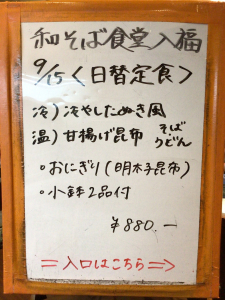 和そば食堂入福
9/15〈日替定食〉
冷)冷やしたぬき風
温)甘揚げ昆布 そば
うどん
・おにぎり(明太子昆布)
・小鉢2品付
¥880.—
=入口はこちら=>